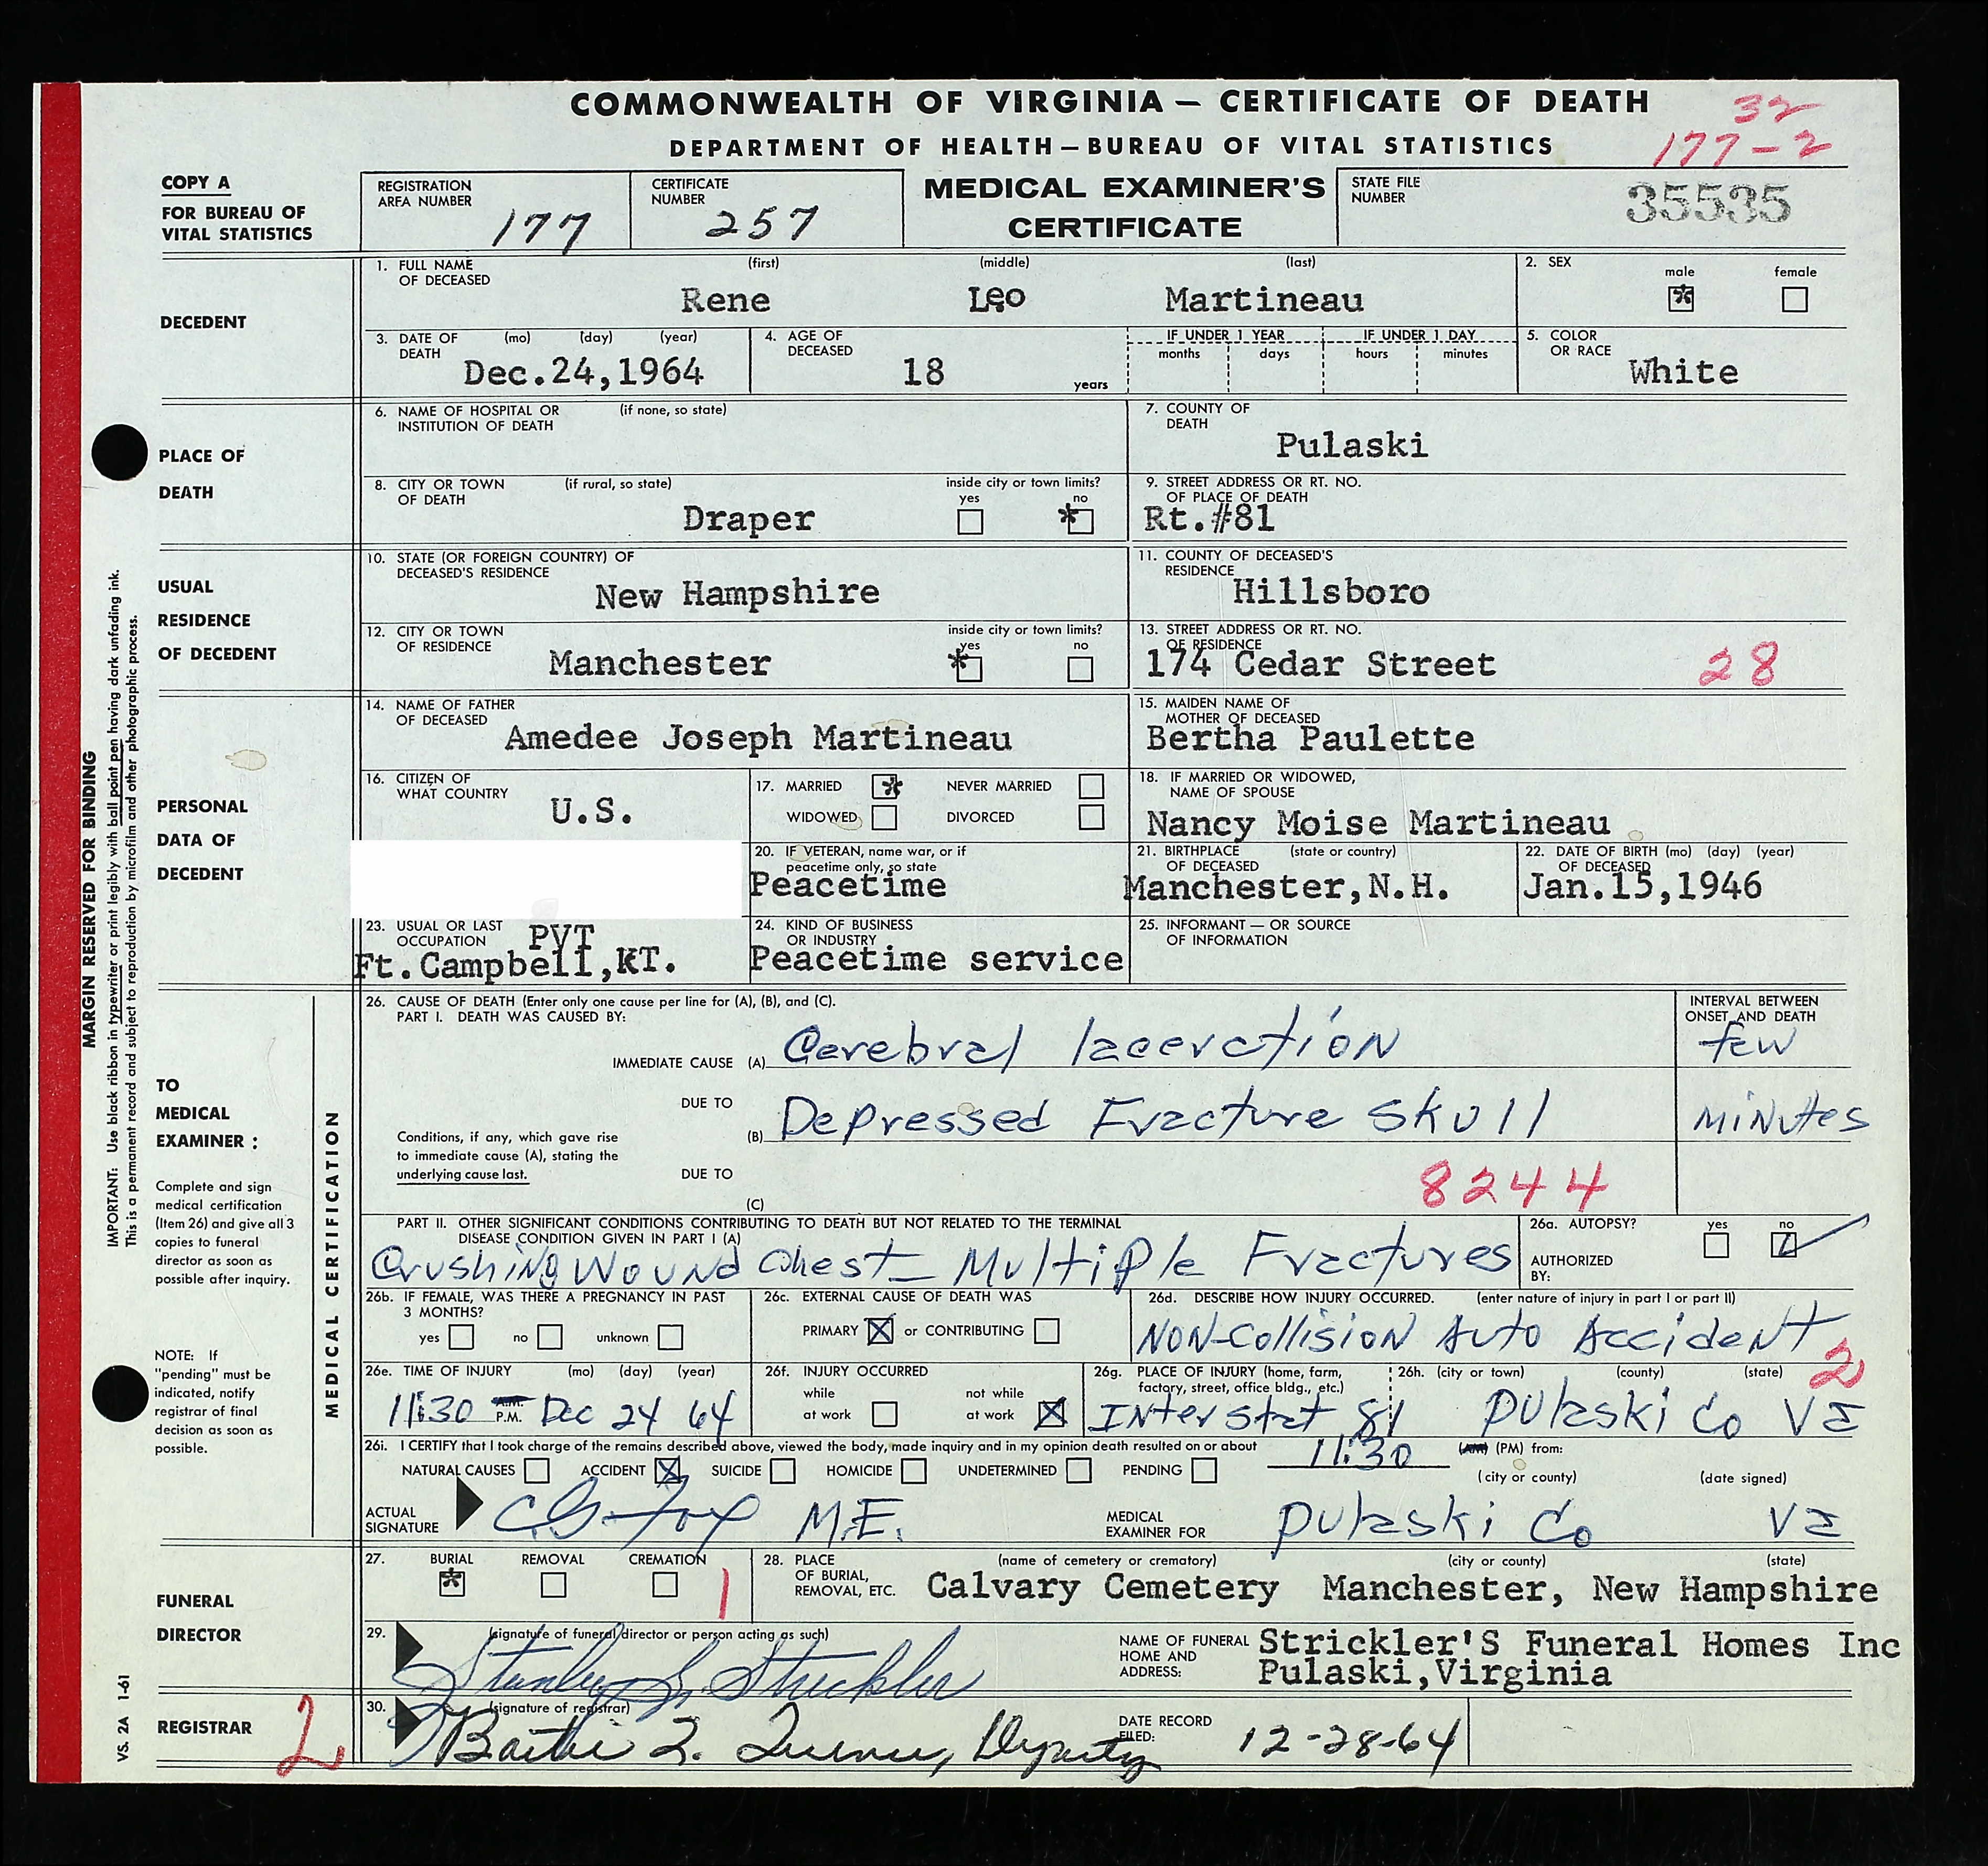 COMMONWEALTH OF VIRGINIA — CERTIFICATE OF DEATH
32
DEPARTMENT OF HEALTH — BUREAU OF VITAL STATISTICS
177-2
COPY A
FOR BUREAU OF
VITAL STATISTICS
REGISTRATION
AREA NUMBER
177
CERTIFICATE
NUMBER
257
MEDICAL EXAMINER'S
CERTIFICATE
STATE FILE
NUMBER
35535
DECEDENT
1. FULL NAME
OF DECEASED
(first) (middle) (last)
Rene Leo Martineau
2. SEX
male female
*
3. DATE OF
DEATH
(mo) (day) (year)
Dec.24,1964
4. AGE OF
DECEASED
18 years
IF UNDER 1 YEAR
months days
IF UNDER 1 DAY
hours minutes
5. COLOR
OR RACE
White
PLACE OF
DEATH
6. NAME OF HOSPITAL OR (if none, so state)
INSTITUTION OF DEATH
7. COUNTY OF
DEATH
Pulaski
8. CITY OR TOWN (if rural, so state)
OF DEATH
Draper
inside city or town limits?
yes no
*
9. STREET ADDRESS OR RT. NO.
OF PLACE OF DEATH
Rt.#81
USUAL
RESIDENCE
OF DECEDENT
10. STATE (OR FOREIGN COUNTRY) OF
DECEASED'S RESIDENCE
New Hampshire
11. COUNTY OF DECEASED'S
RESIDENCE
Hillsboro
12. CITY OR TOWN
OF RESIDENCE
Manchester
inside city or town limits?
yes no
*
13. STREET ADDRESS OR RT. NO.
OF RESIDENCE
174 Cedar Street
28
PERSONAL
DATA OF
DECEDENT
14. NAME OF FATHER
OF DECEASED
Amedee Joseph Martineau
15. MAIDEN NAME OF
MOTHER OF DECEASED
Bertha Paulette
16. CITIZEN OF
WHAT COUNTRY
U.S.
17. MARRIED * NEVER MARRIED
WIDOWED DIVORCED
18. IF MARRIED OR WIDOWED,
NAME OF SPOUSE
Nancy Moise Martineau
20. IF VETERAN, name war, or if
peacetime only, so state
Peacetime
21. BIRTHPLACE (state or country)
OF DECEASED
Manchester,N.H.
22. DATE OF BIRTH (mo) (day) (year)
OF DECEASED
Jan.15,1946
23. USUAL OR LAST
OCCUPATION
PVT
Ft.Campbell,KT.
24. KIND OF BUSINESS
OR INDUSTRY
Peacetime service
25. INFORMANT — OR SOURCE
OF INFORMATION
MARGIN RESERVED FOR BINDING
IMPORTANT: Use black ribbon in typewriter or print legibly with ball point pen having dark unfading ink.
This is a permanent record and subject to reproduction by microfilm and other photographic process.
TO
MEDICAL
EXAMINER :
Complete and sign
medical certification
(Item 26) and give all 3
copies to funeral
director as soon as
possible after inquiry.
NOTE: If
"pending" must be
indicated, notify
registrar of final
decision as soon as
possible.
MEDICAL CERTIFICATION
26. CAUSE OF DEATH (Enter only one cause per line for (A), (B), and (C).
PART I. DEATH WAS CAUSED BY:
INTERVAL BETWEEN
ONSET AND DEATH
IMMEDIATE CAUSE (A) Cerebral laceration
few
DUE TO
(B) Depressed Fracture Skull
minutes
Conditions, if any, which gave rise
to immediate cause (A), stating the
underlying cause last.
DUE TO
(C)
8244
PART II. OTHER SIGNIFICANT CONDITIONS CONTRIBUTING TO DEATH BUT NOT RELATED TO THE TERMINAL
DISEASE CONDITION GIVEN IN PART I (A)
Crushing Wound Chest - Multiple Fractures
26a. AUTOPSY? yes no
AUTHORIZED
BY:
26b. IF FEMALE, WAS THERE A PREGNANCY IN PAST
3 MONTHS?
yes no unknown
26c. EXTERNAL CAUSE OF DEATH WAS
PRIMARY X or CONTRIBUTING
26d. DESCRIBE HOW INJURY OCCURRED. (enter nature of injury in part I or part II)
Non-Collision Auto Accident
2
26e. TIME OF INJURY (mo) (day) (year)
11:30 A.M. P.M. Dec 24 64
26f. INJURY OCCURRED
while not while
at work at work X
26g. PLACE OF INJURY (home, farm,
factory, street, office bldg., etc.)
Inter Stat 81
26h. (city or town) (county) (state)
Pulaski Co Va
26i. I CERTIFY that I took charge of the remains described above, viewed the body, made inquiry and in my opinion death resulted on or about 11:30 (AM) (PM) from:
NATURAL CAUSES ACCIDENT X SUICIDE HOMICIDE UNDETERMINED PENDING
(city or county) (date signed)
ACTUAL
SIGNATURE
C.G. Fox M.E.
MEDICAL
EXAMINER FOR
Pulaski Co Va
FUNERAL
DIRECTOR
27. BURIAL REMOVAL CREMATION
*
1
28. PLACE
OF BURIAL,
REMOVAL, ETC.
(name of cemetery or crematory) (city or county) (state)
Calvary Cemetery Manchester, New Hampshire
29. (signature of funeral director or person acting as such)
Stanley S. Strickler
NAME OF FUNERAL
HOME AND
ADDRESS:
Strickler'S Funeral Homes Inc
Pulaski,Virginia
VS. 2A 1-61
REGISTRAR
2
30. (signature of registrar)
Deputy
DATE RECORD
FILED:
12-28-64